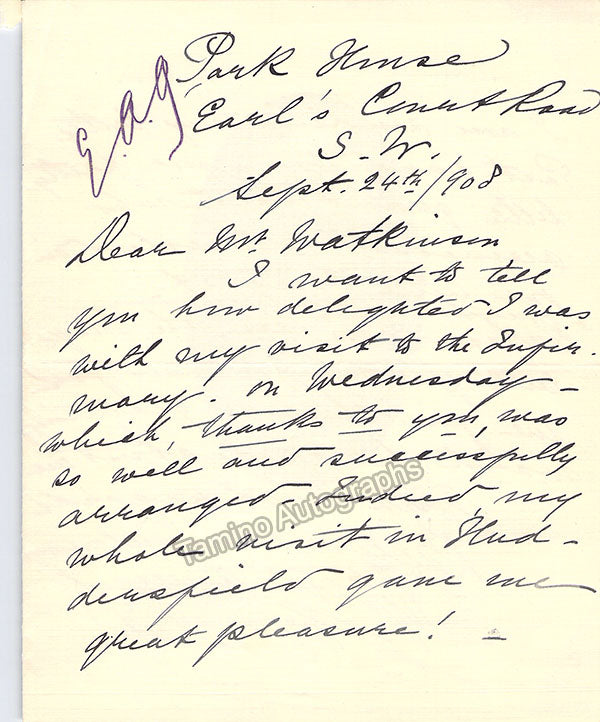 E.A.G
Park House
Earl's Court Road
S.W.
Sept. 24th/908
Dear Mr. Watkinson
I want to tell
you how delighted I was
with my visit to the Infir-
mary. on Wednesday -
which, thanks to you, was
so well and successfully
arranged. Indeed, my
whole visit in Hud-
dersfield gave me
great pleasure! -
Tamino Autographs